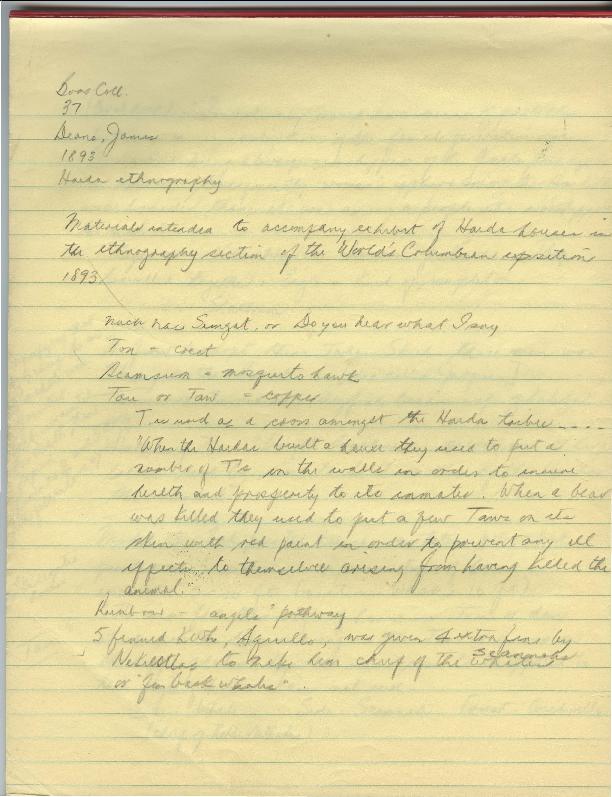 Boas Coll.
37
Deans, James
1893
Haida ethnography
Materials intended to accompany exhibit of Haida houses in
the ethnography section of the World's Columbian exposition
1893
nuck nas Sungat, or Do you hear what I say
Ton - crest
= mosquito hawk
Tau or Taw = copper
T is used as a cross amongst the Haida tribe ....
"When the Haidas built a house they used to put a
number of T's in the walls in order to insure
health and prosperity to its inmates. When a bear
was killed they used to put a few Taws on its
skin with red paint in order to prevent any ill
effects to themselves arising from having killed the
animal."
Rainbow - angels' pathway
5 finned was given 4 extra fins by
to make him chief of the whales
or "fin back whales".